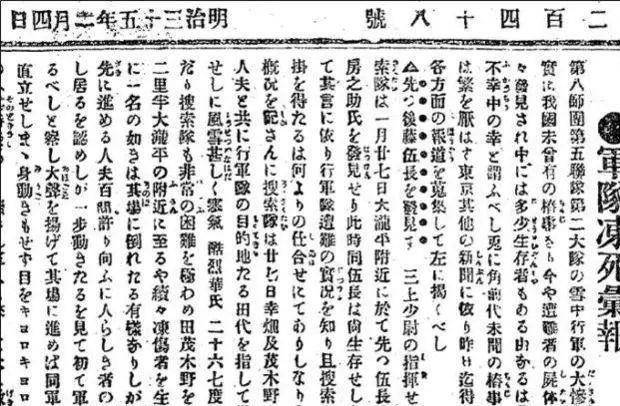 二百四十八號
明治三十五年二月四日
●軍隊凍死彙報
第八師團第五聯隊第二大隊の雪中行軍の大慘
實に我國未曾有の椿事なり今や遭難者の屍体
々發見され中には多少生存者もある由なるは
不幸中の幸と謂ふべし兎に角前代未聞の椿事
は繁を厭はず東京其他の新聞に依り昨日迄得
各方面の報道を蒐集して左に掲くべし
△先つ後藤伍長を發見す 三上少尉の指揮せ
索隊は一月廿七日大瀧平附近に於て先つ伍長
房之助氏を發見せり此時伍長は尙生存せし
て其言に依り行軍隊遭難の實況を知り且捜索
掛を得たるは何よりの仕合せにてありしなり
概況を記さんに捜索隊は廿七日幸畑及茂木野
人夫と共に行軍隊の目的地たる田代を指して
せしに風雪甚しく寒氣 酷烈華氏 二十六七度
だり捜索隊も非常の困難を極わめ田茂木野を
二里半大瀧平の附近に至るや續々凍傷者を生
に一名の如きは其場に倒れたる有樣なりしが
先に進める人夫百間許り向ふに人らしき者の
し居るを認めしが一步動きたるを見て初て軍
るべしと察し大聲を揚げて其場に進めば同軍
直立せしまゝ身動きもせず目をキヨロキヨロ